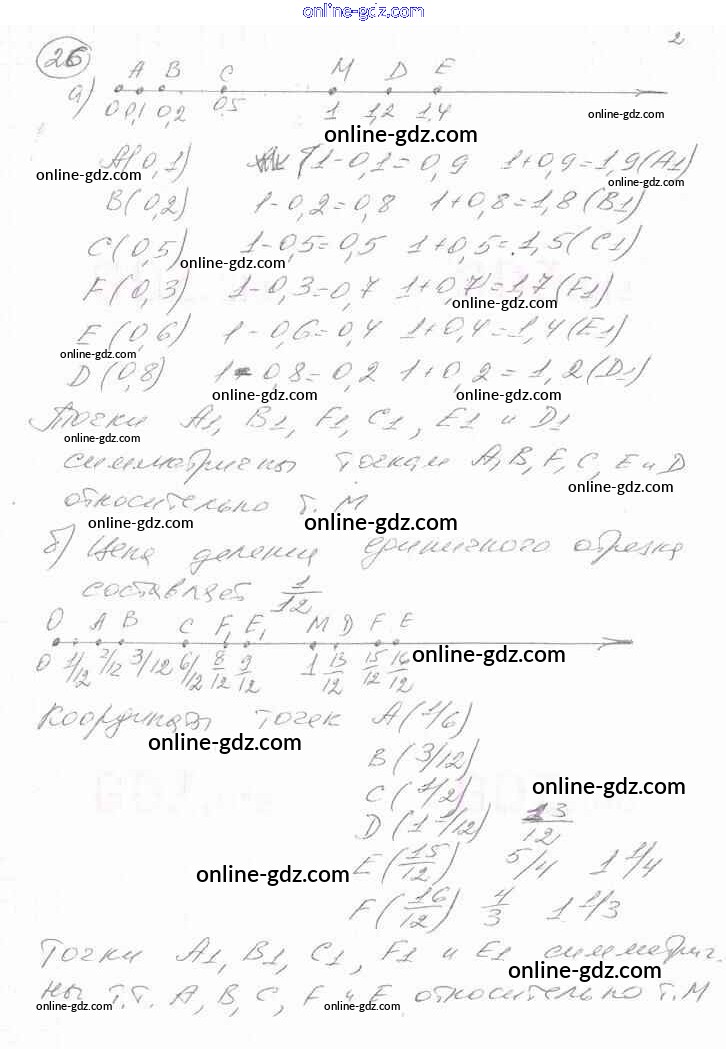 online-gdz.com
2
26
а) A B C M D E
0 0,1 0,2 0,5 1 1,2 1,4
online-gdz.com
online-gdz.com
A(0,1) 1-0,1=0,9 1+0,9=1,9(A1)
online-gdz.com
online-gdz.com
B(0,2) 1-0,2=0,8 1+0,8=1,8(B1)
C(0,5) 1-0,5=0,5 1+0,5=1,5(C1)
online-gdz.com
F(0,3) 1-0,3=0,7 1+0,7=1,7(F1)
online-gdz.com
E(0,6) 1-0,6=0,4 1+0,4=1,4(E1)
online-gdz.com
D(0,8) 1-0,8=0,2 1+0,2=1,2(D1)
online-gdz.com
online-gdz.com
Точки A1, B1, F1, C1, E1 и D1
online-gdz.com
симметричны точкам A, B, F, C, E и D
online-gdz.com
относительно т. M
online-gdz.com
online-gdz.com
б) Цена деления единичного отрезка
составляет 1/12
O A B C F1 E1 M D F E
0 1/12 2/12 3/12 6/12 8/12 9/12 1 13/12 15/12 16/12
online-gdz.com
Координаты точек A(1/6)
online-gdz.com
B(3/12)
online-gdz.com
C(1/2)
D(1 1/12) 13/12
E(15/12) 5/4 1 1/4
online-gdz.com
F(16/12) 4/3 1 1/3
Точки A1, B1, C1, F1 и E1 симметрич-
online-gdz.com
ны т.т. A, B, C, F и E относительно т. M
online-gdz.com
online-gdz.com
online-gdz.com